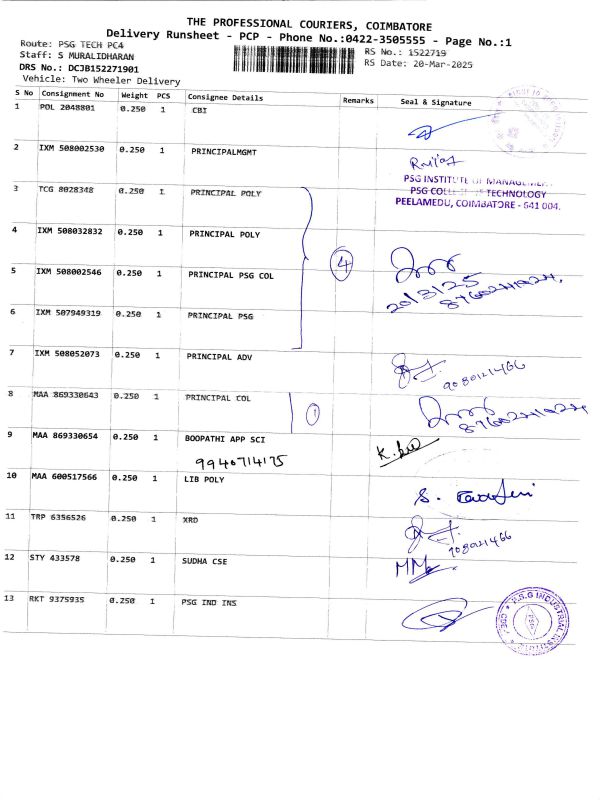 THE PROFESSIONAL COURIERS, COIMBATORE
Delivery Runsheet - PCP - Phone No.:0422-3505555 - Page No.:1
Route: PSG TECH PC4
Staff: S MURALIDHARAN
DRS No.: DCJB152271901
Vehicle: Two Wheeler Delivery
RS No.: 1522719
RS Date: 20-Mar-2025
S No Consignment No Weight PCS Consignee Details Remarks Seal & Signature
1 POL 2048801 0.250 1 CBI
2 IXM 508002530 0.250 1 PRINCIPALMGMT
PSG INSTITUTE OF MANAGEMENT
PSG COLLEGE OF TECHNOLOGY
PEELAMEDU, COIMBATORE - 641 004.
3 TCG 8028348 0.250 1 PRINCIPAL POLY
4 IXM 508032832 0.250 1 PRINCIPAL POLY
4
5 IXM 508002546 0.250 1 PRINCIPAL PSG COL
20/3/25
6 IXM 507949319 0.250 1 PRINCIPAL PSG
7 IXM 508052073 0.250 1 PRINCIPAL ADV
9080121466
8 MAA 869330643 0.250 1 PRINCIPAL COL
1
9 MAA 869330654 0.250 1 BOOPATHI APP SCI
9940714175
10 MAA 600517566 0.250 1 LIB POLY
11 TRP 6356526 0.250 1 XRD
12 STY 433578 0.250 1 SUDHA CSE
13 RKT 9375935 0.250 1 PSG IND INS
P.S.G INDUSTRIAL INSTITUTE